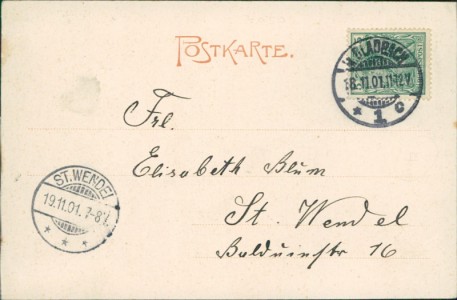 POSTKARTE.
M. GLADBACH
18.11.01.11-12V.
* 1 c
Frl.
Elisabeth Blum
St. Wendel
Balduinstr 16
ST. WENDEL
19.11.01. 7-8V.
* * *